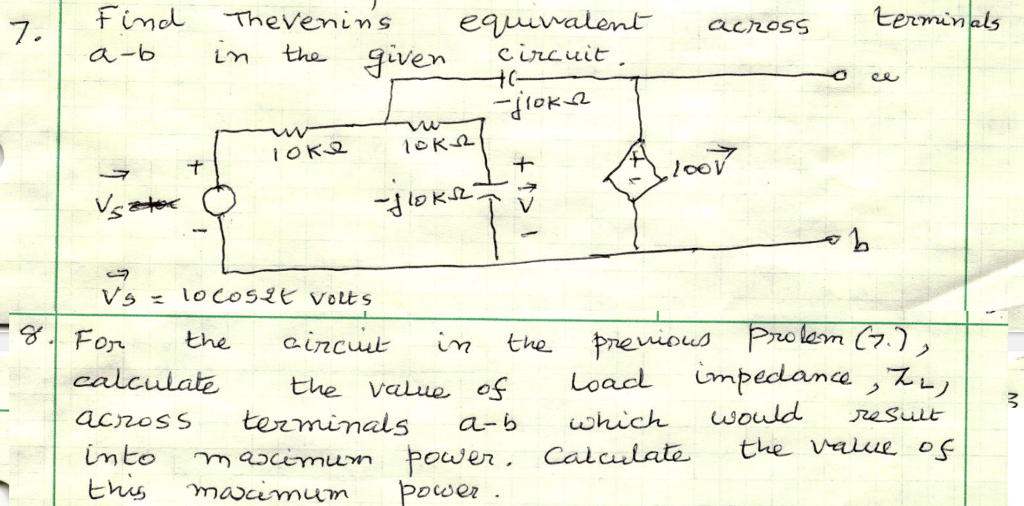 7. Find Thevenin's equivalent across terminals
a-b in the given circuit.
a
-j10KΩ
10KΩ 10KΩ
+ + + 100V
Vs -j10KΩ V -
- - b
Vs = 10cos2t volts
8. For the circuit in the previous Problem (7.),
calculate the value of Load impedance, ZL,
across terminals a-b which would result
into maximum power. Calculate the value of
this maximum power.
3